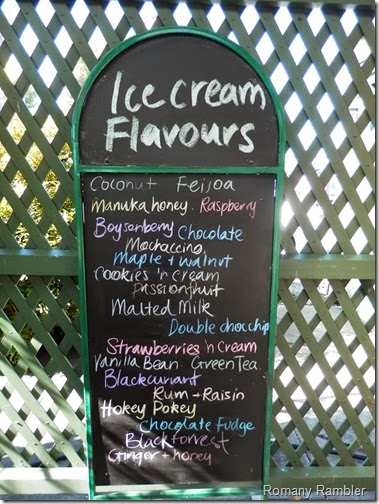 Ice cream
Flavours
Coconut Feijoa
Manuka honey. Raspberry
Boysenberry Chocolate
Mochaccino,
Maple + walnut
Cookies 'n cream
Passionfruit
Malted Milk
Double choc chip
Strawberries 'n Cream
Vanilla Bean. Green Tea.
Blackcurrant
Rum + Raisin
Hokey Pokey
Chocolate Fudge
Black forrest
Ginger + honey
Romany Rambler